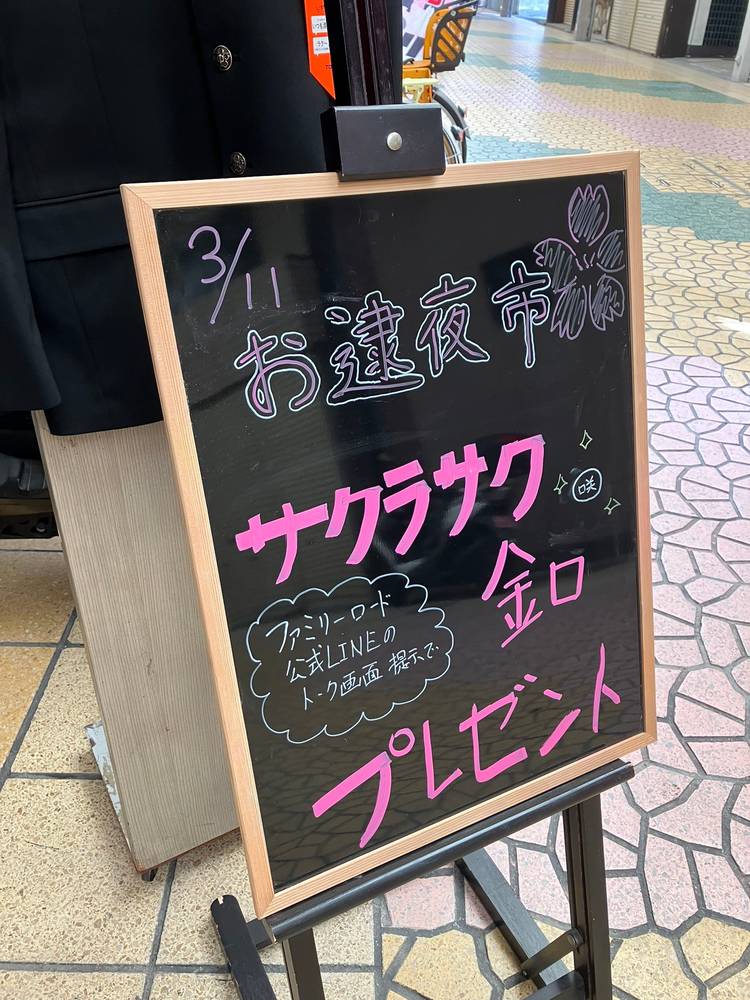 3/11
お逮夜市
サクラサク
咲
釦
プレゼント
ファミリーロード
公式LINEの
トーク画面 提示で